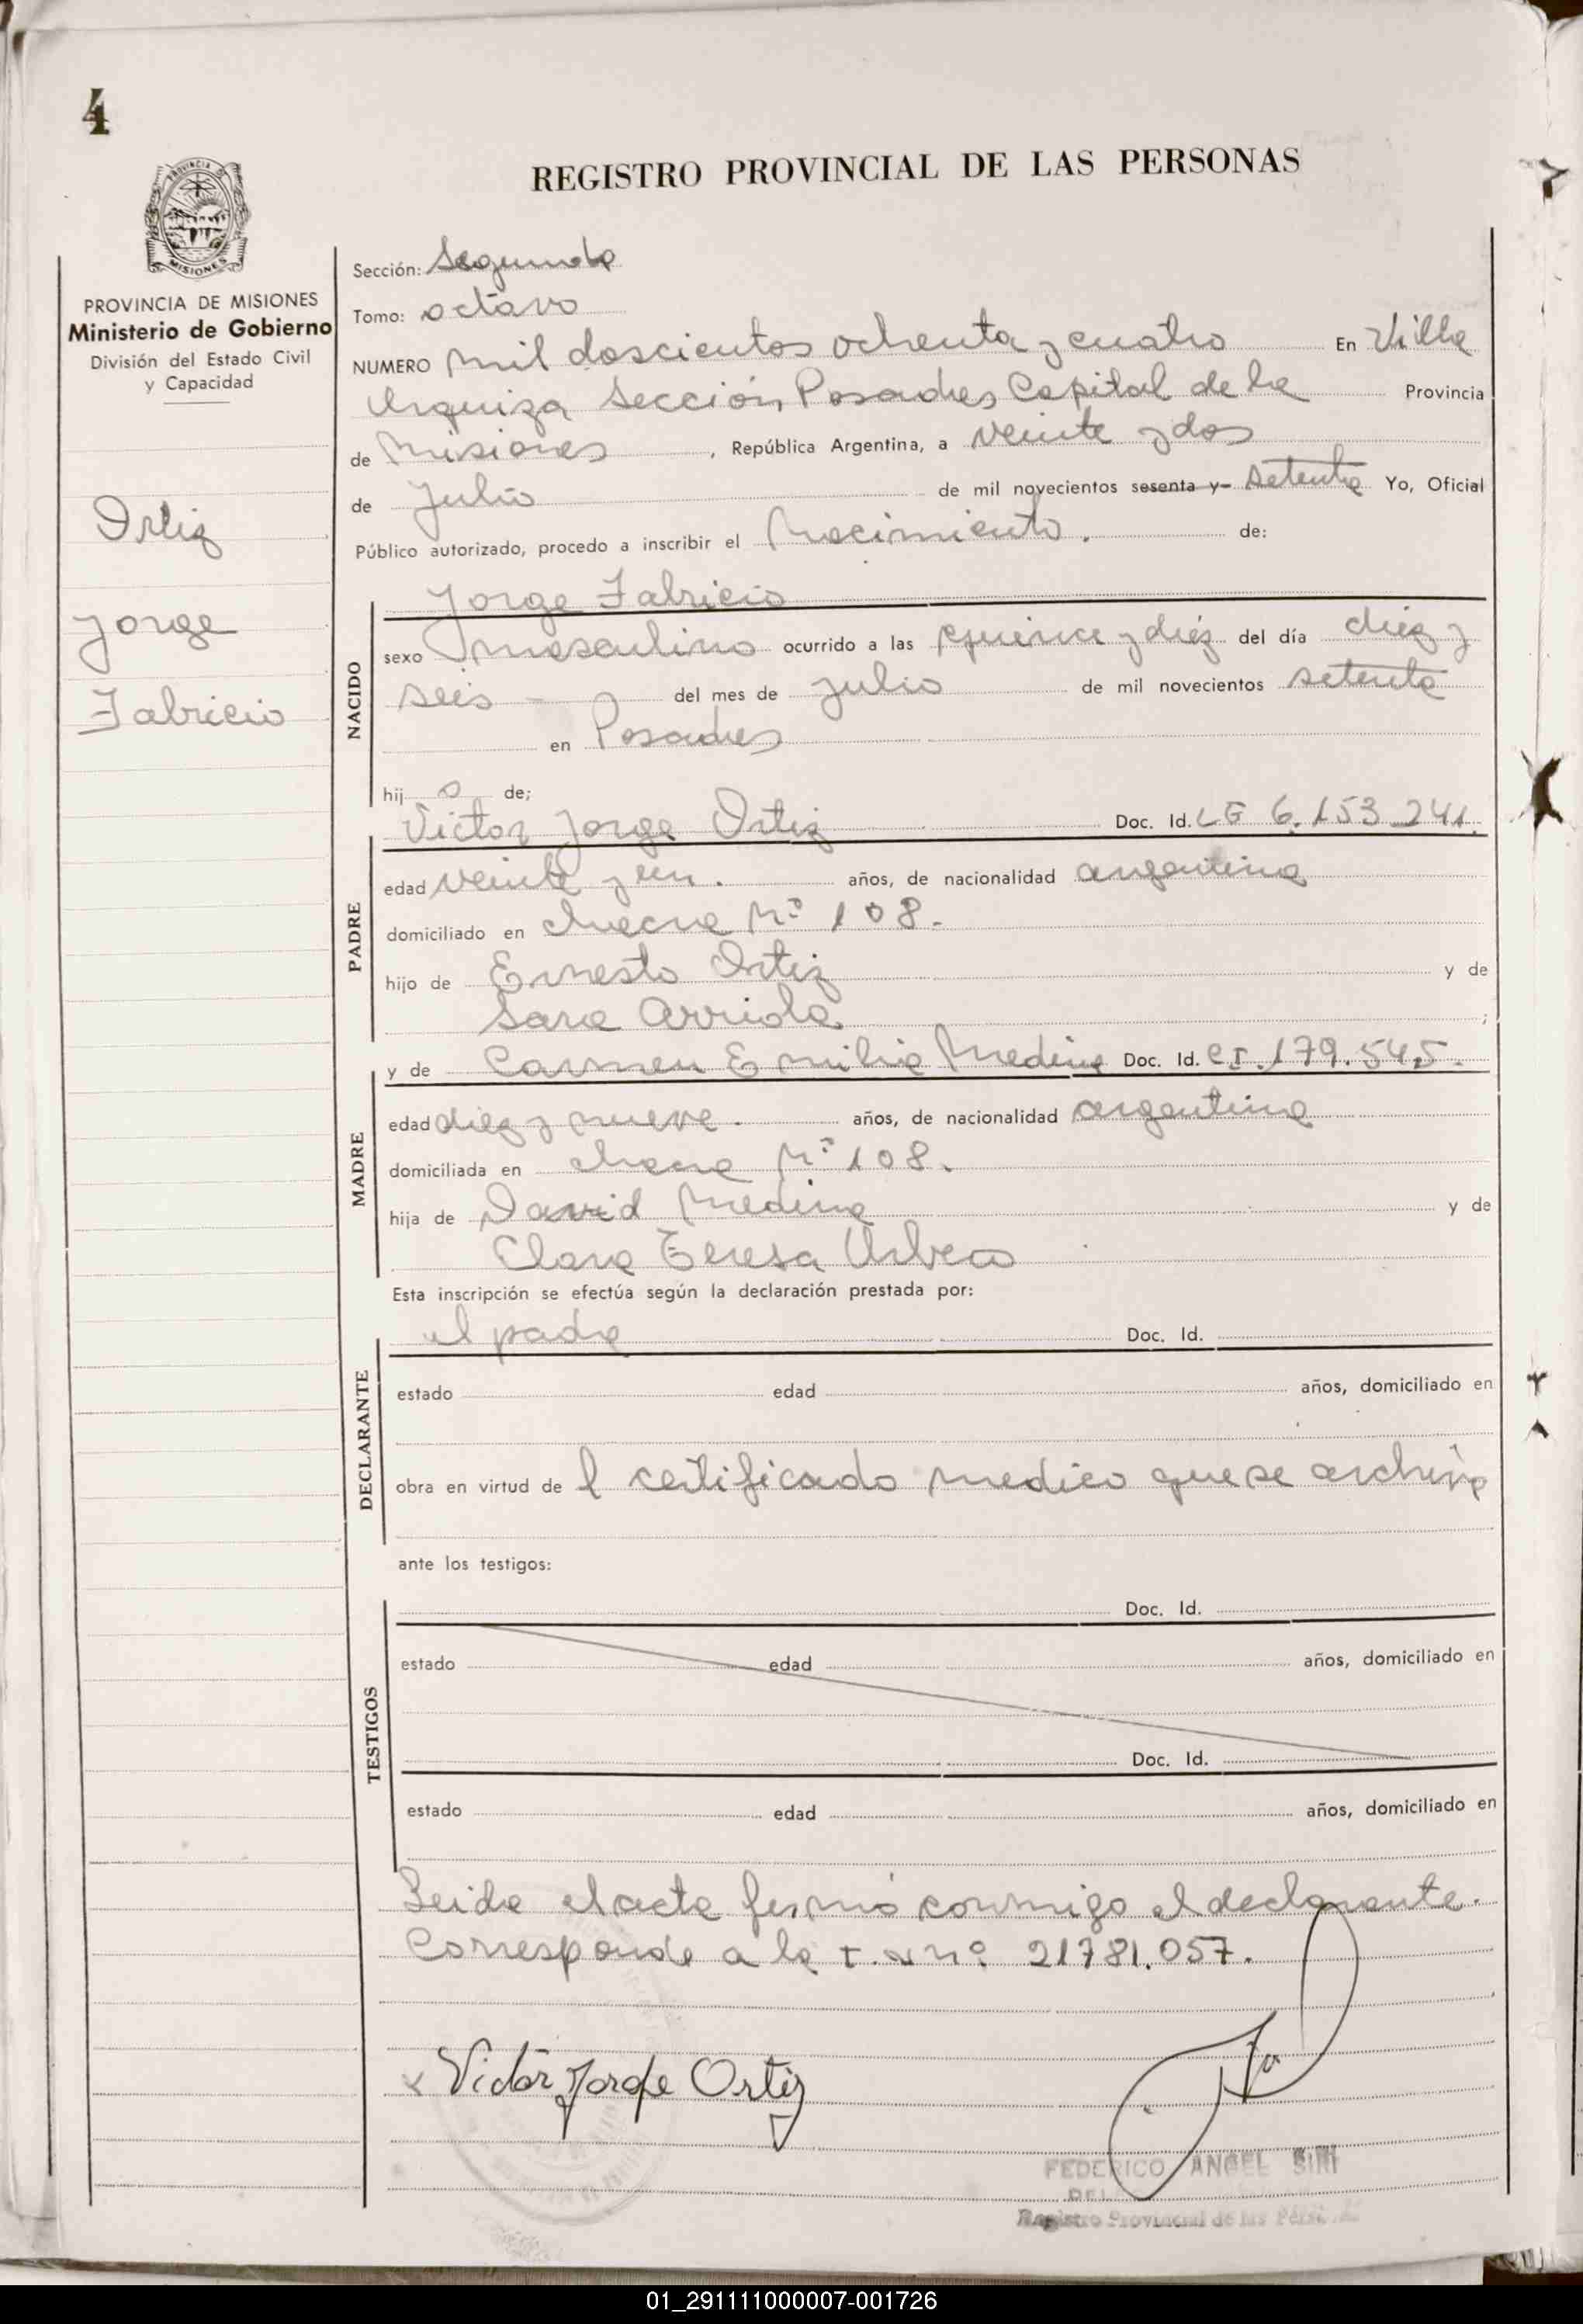 4
PROVINCIA
MISIONES
PROVINCIA DE MISIONES
Ministerio de Gobierno
División del Estado Civil
y Capacidad
Ortiz
Jorge
Fabricio
REGISTRO PROVINCIAL DE LAS PERSONAS
Sección: Segunda
Tomo: octavo
NUMERO mil doscientos ochenta y cuatro En Villa
Urquiza Sección Posadas Capital de la Provincia
de Misiones, República Argentina, a veinte y dos
de Julio de mil novecientos sesenta y setenta Yo, Oficial
Público autorizado, procedo a inscribir el Nacimiento. de:
Jorge Fabricio
NACIDO
sexo masculino ocurrido a las quince y diéz del día diez y
seis - del mes de Julio de mil novecientos setenta
en Posadas
hij o de;
Victor Jorge Ortiz Doc. Id. LE 6.153.241.
PADRE
edad veinte y un. años, de nacionalidad argentina
domiciliado en chacra Nº 108.
hijo de Ernesto Ortiz y de
Sara Arriola ;
y de Carmen Emilia Medina Doc. Id. CI. 179.545.
MADRE
edad diez y nueve. años, de nacionalidad argentina
domiciliada en chacra Nº 108.
hija de David Medina y de
Clara Teresa
Esta inscripción se efectúa según la declaración prestada por:
el padre Doc. Id.
DECLARANTE
estado edad años, domiciliado en
obra en virtud de l certificado medico que se archiva
ante los testigos:
Doc. Id.
TESTIGOS
estado edad años, domiciliado en
Doc. Id.
estado edad años, domiciliado en
Leida el acta firmó conmigo el declarante.
Corresponde a la nº 21781.057.
Victor Jorge Ortiz
FEDERICO ANGEL SIRI
DEL
Registro Provincial de las
01_291111000007-001726